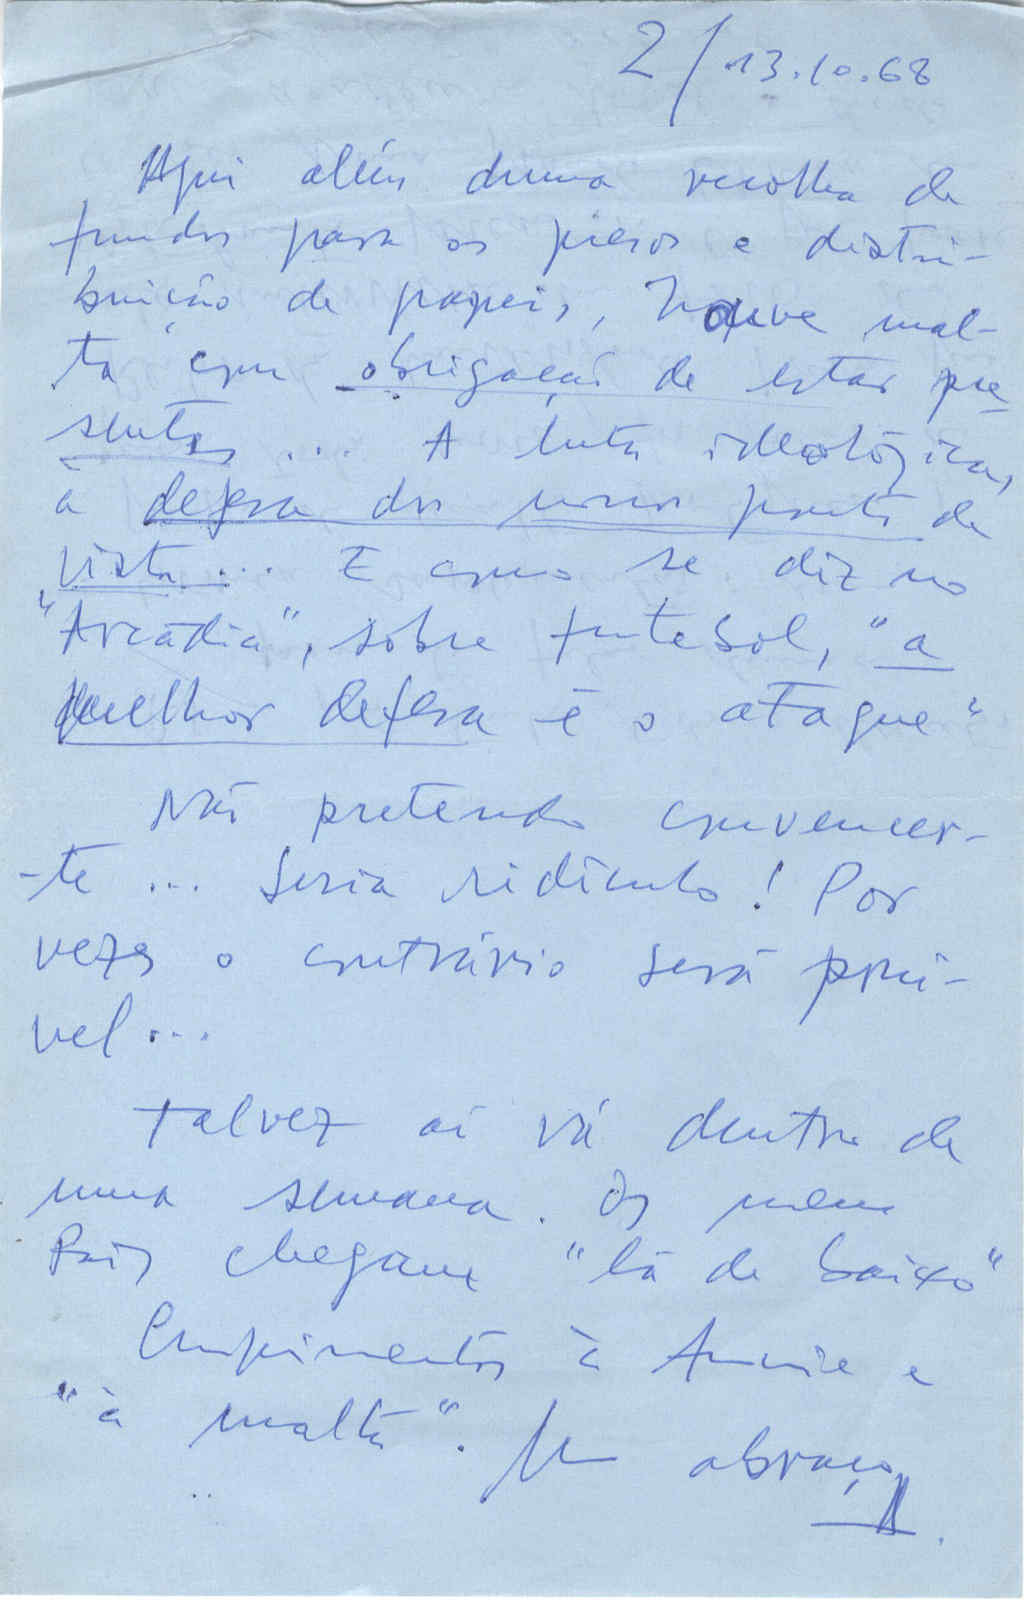 2/13.10.68
Aqui além duma recolha de
fundos para os presos e distri-
buição de papeis, houve mal-
ta com obrigação de estar pre-
sentes ... A luta ideológica,
a defesa dos nossos pontos de
vista ... E como se diz no
"Arcádia", sobre futebol, "a
melhor defesa é o ataque"
Não pretendo convencer-
-te ... Seria ridículo! Por
vezes o contrário será possí-
vel ...
Talvez aí vá dentro de
uma semana. Os meus
Pais chegam "lá de baixo"
Cumprimentos à Annie e
"à malta". Um abraço